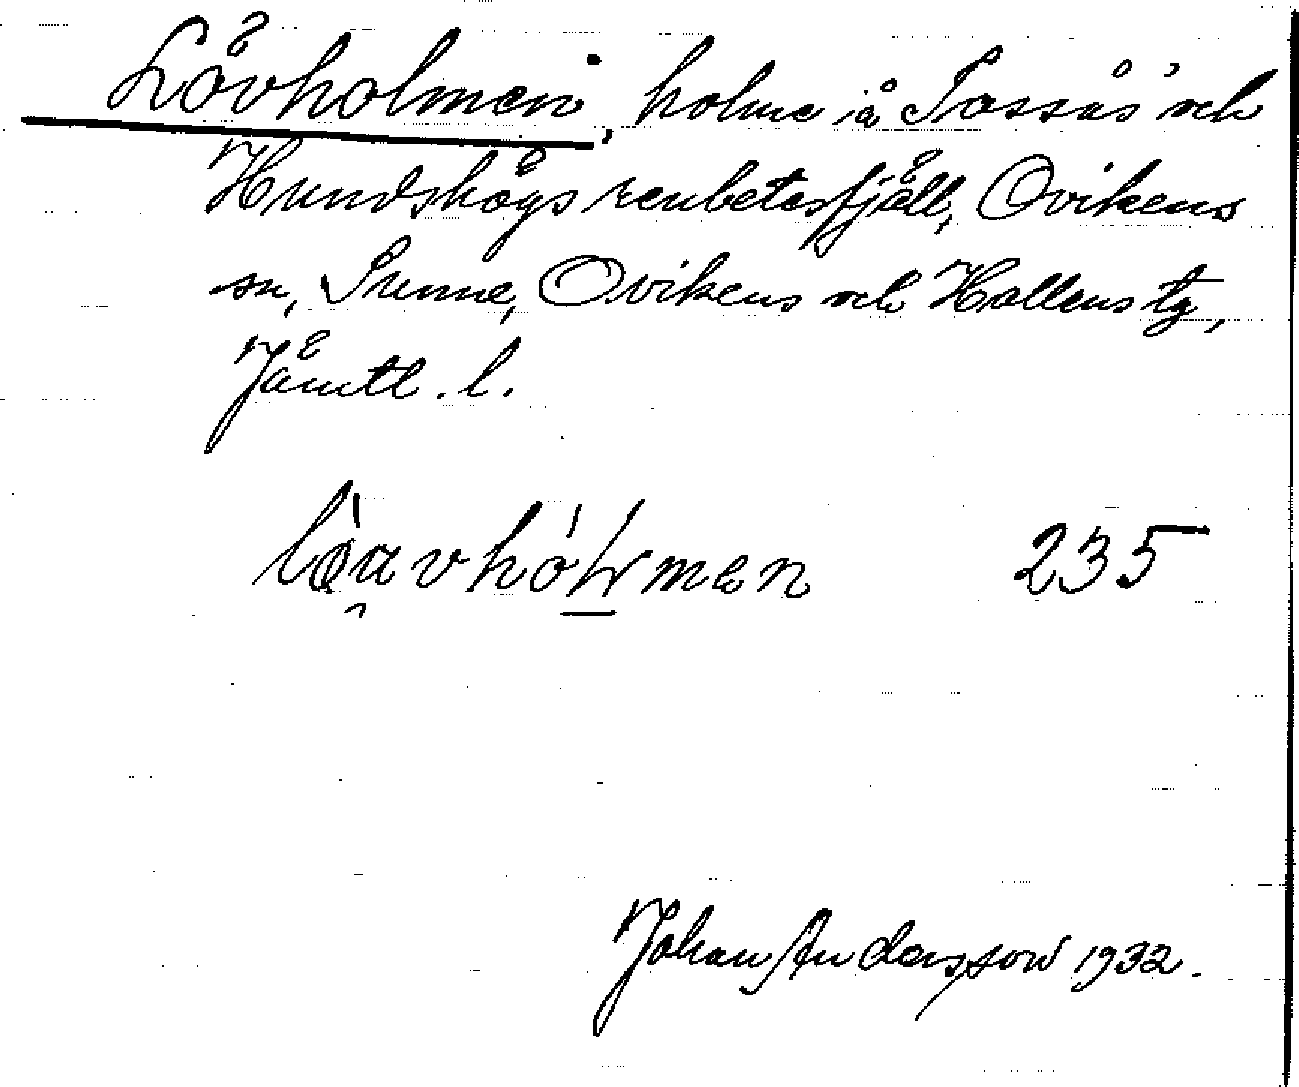 Lövholmen, holme på Tossås och
Hundshögs renbetesfjäll, Ovikens
sn, Sunne, Ovikens och Hallens tg,
Jämtl. l.
235
Johan Andersson 1932.